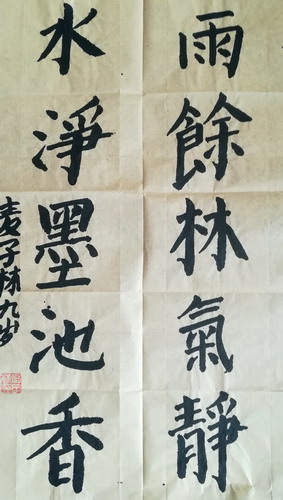 雨餘林氣靜
水淨墨池香
麦子林九岁